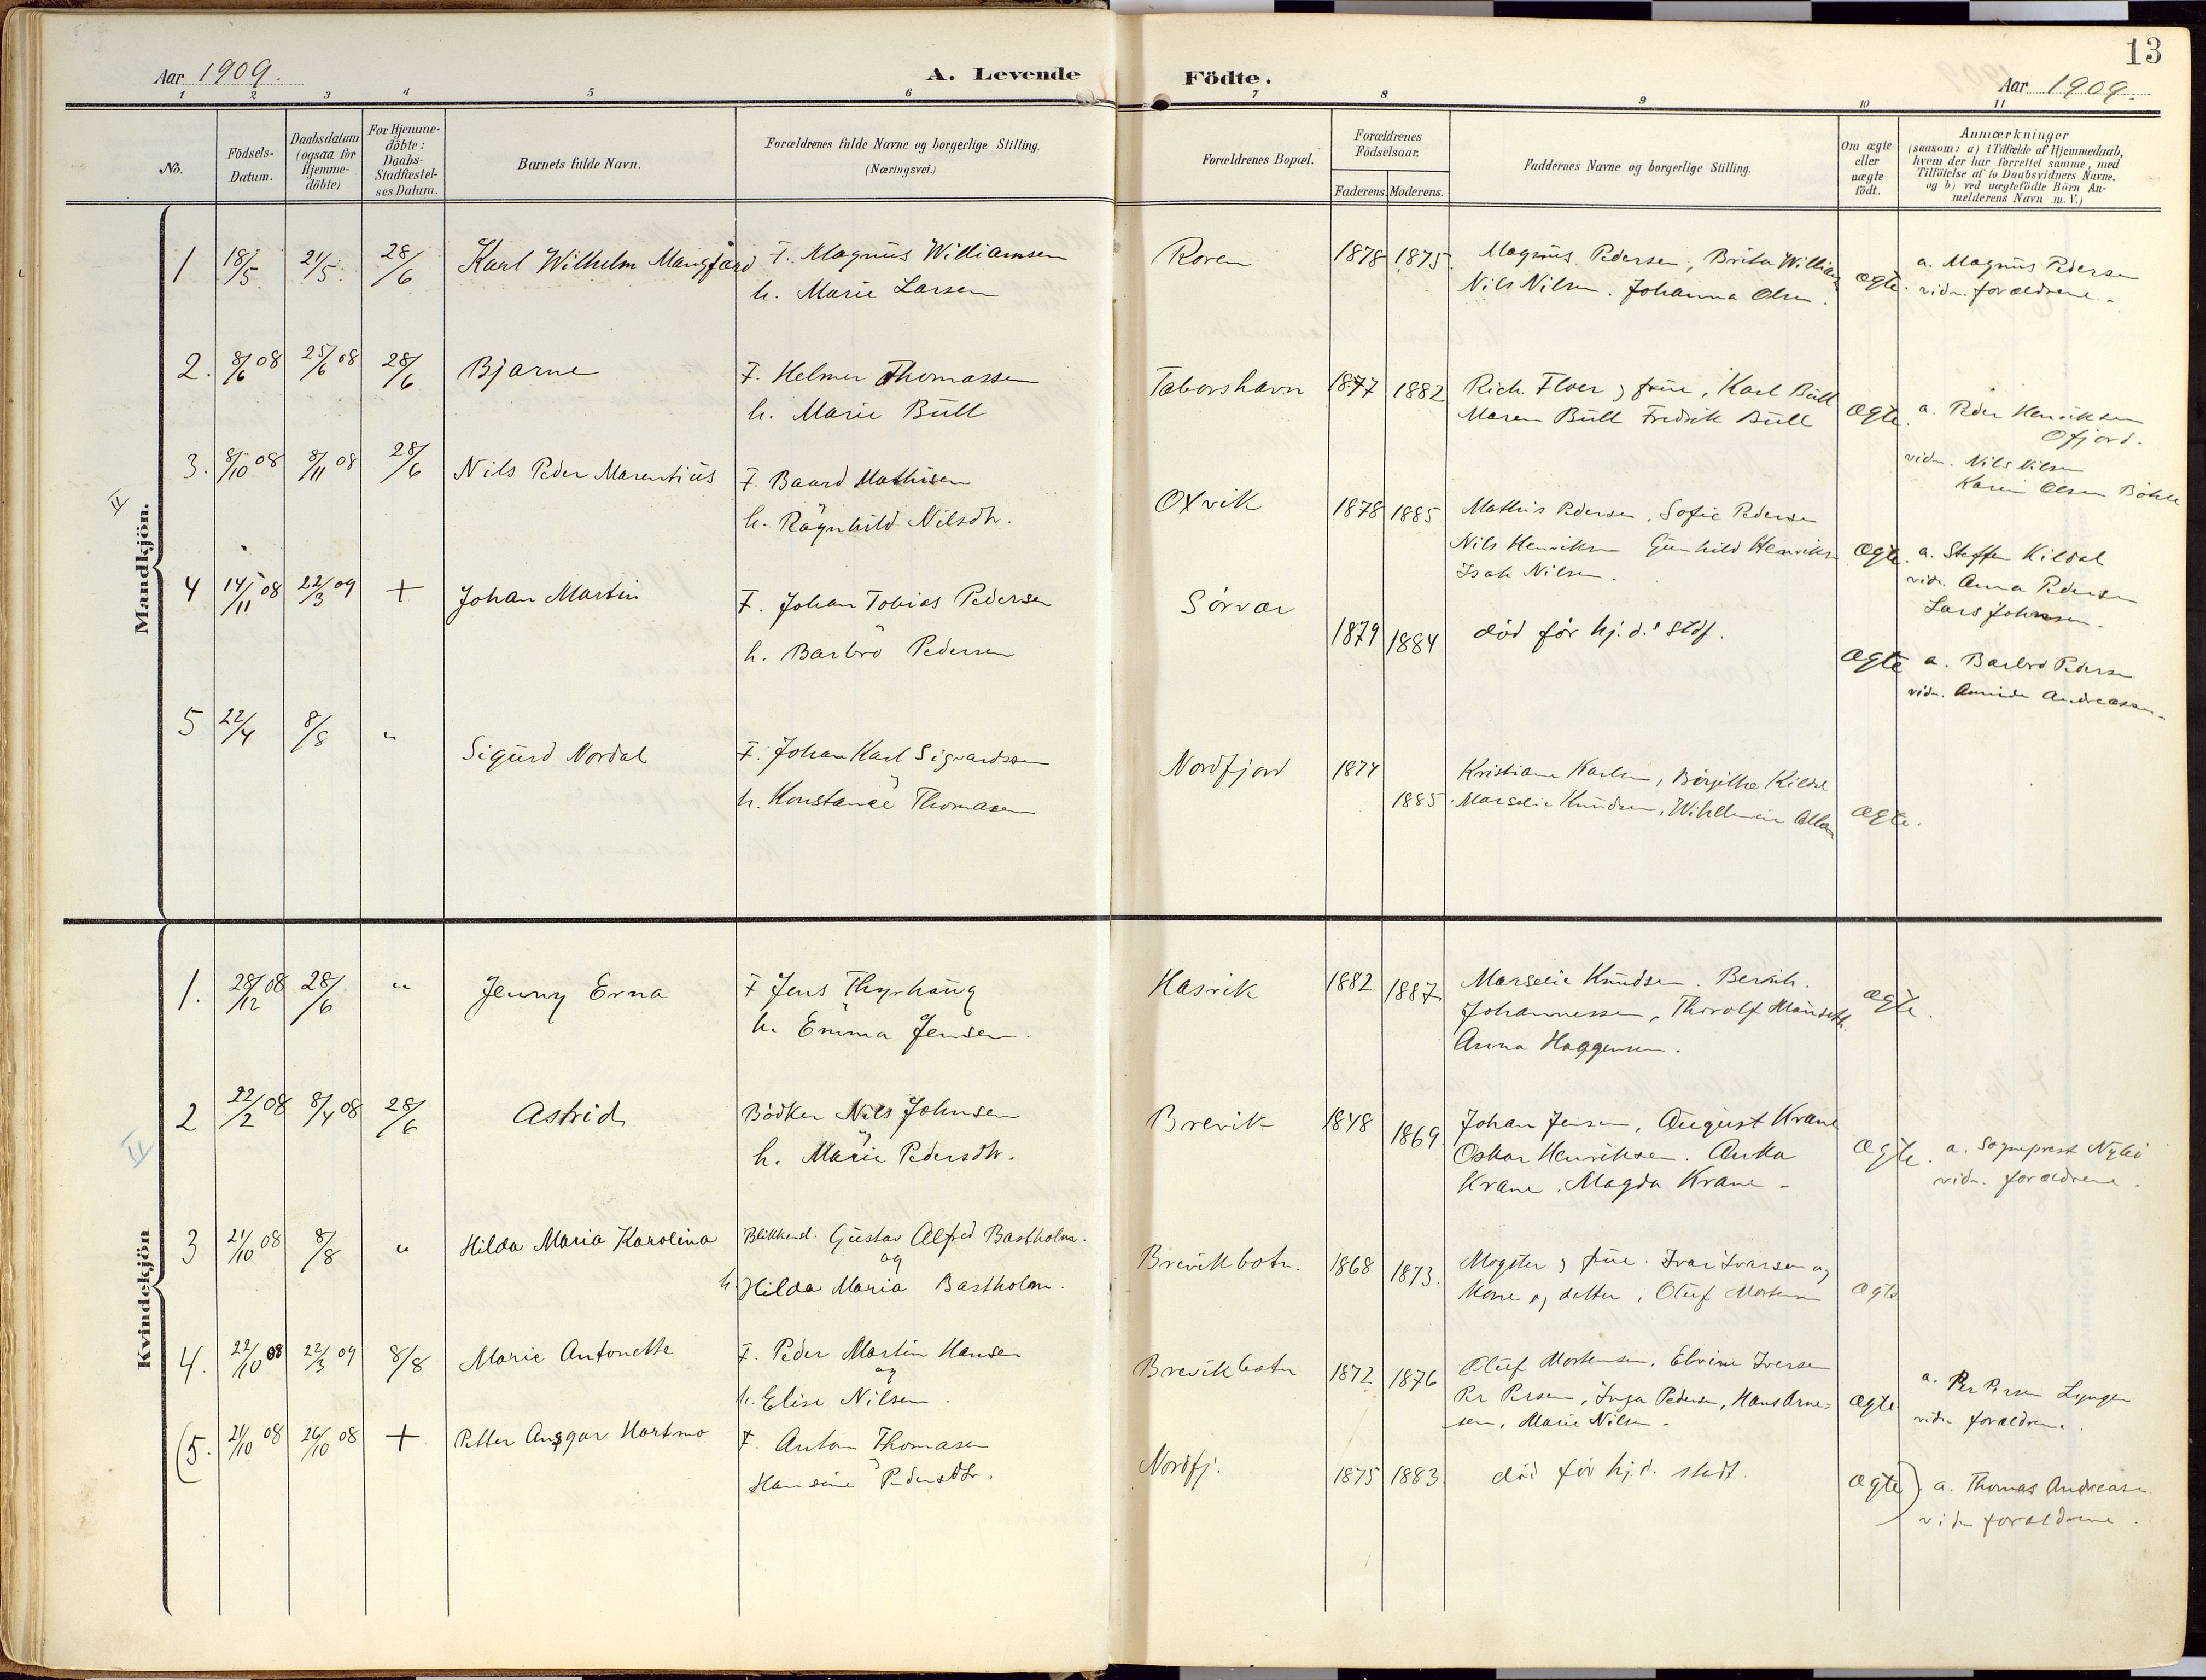 Aar 1909.
A. Levende
Födte.
13
Aar 1909.
1 2 3 4 5 6 7 8 9 10 11
No.
Födsels-
Datum.
Daabsdatum
(ogsaa for
Hjemme-
döbte)
For Hjemme-
döbte:
Daabs-
Stadfæstel-
ses Datum.
Barnets fulde Navn.
Forældrenes fulde Navne og borgerlige Stilling.
(Næringsvei.)
Forældrenes Bopæl.
Forældrenes
Födselsaar.
Faderens. Moderens.
Faddernes Navne og borgerlige Stilling.
Om ægte
eller
uægte
födt.
Anmærkninger
(saasom: a) i Tilfælde af Hjemmedaab,
hvem der har forrettet samme, med
Tilföielse af to Daabsvidners Navne,
og b) ved uægtefödte Börn An-
melderens Navn m. V.)
Mandkjön.
II
1 18/5 21/5 28/6 Karl Wilhelm Mangfard
F. Magnus Williamsen
h. Marie Larsen
Roren 1878 1875
Magnus Pedersen, Brita William
Nils Nilsen. Johanna Olsen.
ægte.
a. Magnus Pedersen
vidn. forældrene.
2. 8/6 08 25/6 08 28/6 Bjarne
F. Helmer Thomassen
h. Marie Bull
Taborshavn 1877 1882
Rich. Floer og frue, Karl Bull
Maren Bull Fredrik Bull
ægte.
a. Peder Henriksen
Ofjord.
vidn. Nils Nilsen
Karen Olsen
3. 8/10 08 8/11 08 28/6 Nils Peder Marentius
F. Baard Mathisen
h. Ragnhild Nilsdtr.
Oxvik 1878 1885
Mathis Pedersen, Sofie Pedersen
Nils Henriksen Gunhild Henriksn
Isak Nilsen.
ægte.
a. Steffen Kildal
vidn. Anna Pedersen
Lars Johnsen.
4 14/11 08 22/3 09 + Johan Martin
F. Johan Tobias Pedersen
h. Barbro Pedersen
Sörvær 1879 1884
död för hj. d.s stdf.
ægte
a. Barbro Pedersen
vidn. Andreasen
5 22/4 8/8 " Sigurd Nordal
F. Johan Karl Sigvardsen
h. Konstance Thomasen
Nordfjord 1874 1885.
Kristiane Karlsen, Birgithe Kildal
Marselie Knudsen,
ægte.
Kvindekjön
II
1. 28/12 08 28/6 " Jenny Erna
F Jens Thyrhaug
h. Emma Jensen.
Hasvik 1882 1887
Marselie Knudsen. Bernh.
Johannessen, Thorolf
Anna Haggensen.
ægte.
2 22/2 08 8/4 08 28/6 Astrid
Bödker Nils Johnsen
h. Marie Pedersdtr.
Brevik 1848 1869.
Johan Jensen, August Krane
Oskar Henriksen. Anka
Krane, Magda Krane
ægte.
a. Sogneprest
vidn. forældrene.
3 21/10 08 8/8 " Hilda Maria Karolina
Blikkensl. Gustav Alfred Bastholm.
og
h. Hilda Maria Bastholm.
Brevikbotn. 1868 1873.
og frue. Ivar Ivarsen og
Kone og datter, Oluf Mortensen
ægte
4. 22/10 08 22/3 09 8/8 Marie Antonette
F. Peder Martin Hansen
og
h. Elise Nilsen.
Brevikbotn 1872 1876
Oluf Mortensen, Elvine Iversen
Per Persen, Inga Pedersen, Hans Arne-
sen, Marie Nilsen.
ægte
a. Per Persen Lyngen
vidn forældrene.
(5. 21/10 08 26/10 08 + Petter Ansgar Hartmo
F. Anton Thomasen
Hansine Pedersdtr.
Nordfj. 1875 1883.
död för hj. d. stadf.
ægte)
a. Thomas Andreasn.
vidn forældrene.